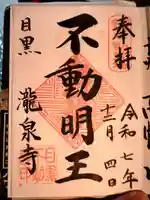 奉拝
令和七年
十二月四日
不動明王
目黒
瀧泉寺